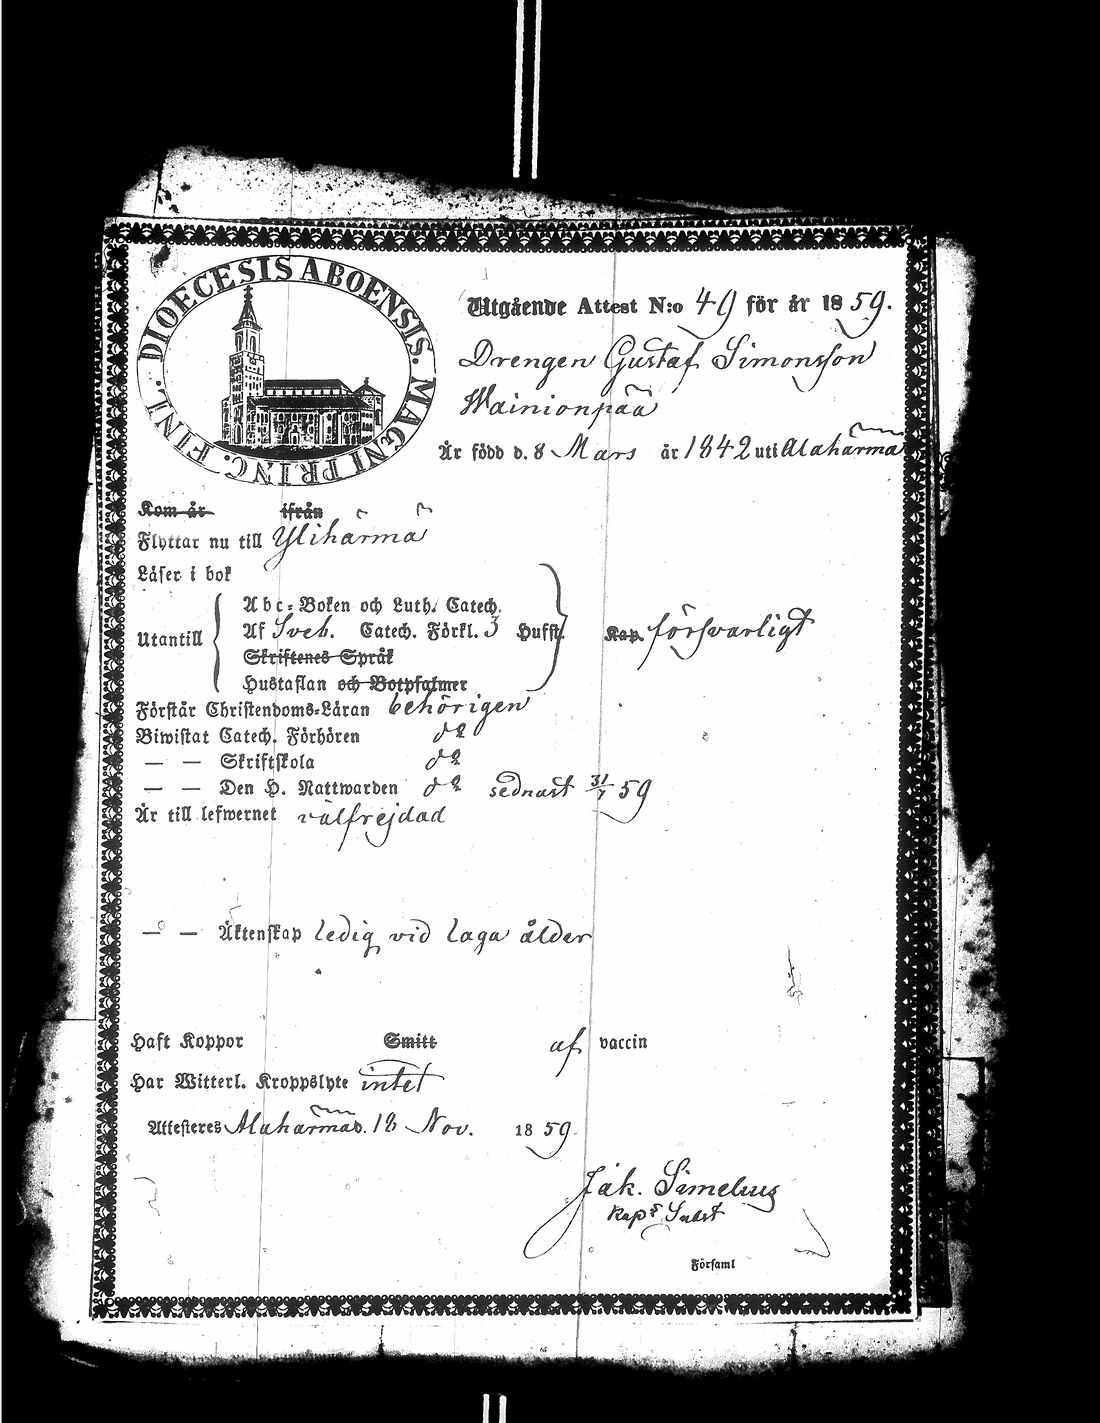 DIOECESIS ABOENSIS. MAGNI PRINC. FINL.
Utgående Attest N:o 49 för år 1859.
Drengen Gustaf Simonsson
Wainionpää
Är född d. 8 Mars år 1842 uti Alahärmä
Kom år ifrån
Flyttar nu till Ylihärmä
Läser i bok
Utantill
Abc-Boken och Luth. Catech.
Af Sveb. Catech. Förkl. 3 Hufst. Kap. försvarligt
Skriftenes Språk
Hustaflan och Botpsalmer
Förstår Christendoms-Läran behörigen
Biwistat Catech. Förhören d:o
— — Skriftskola d:o
— — Den H. Nattwarden d:o sednast 31/7 59
Är till lefwernet välfrejdad
— — Äktenskap ledig vid laga ålder
Haft Koppor Smitt af vaccin
Har Witterl. Kroppslyte intet
Attesteres Alahärmä d. 18 Nov. 1859.
Jak. Simelius
Kap:s Subst
Församl